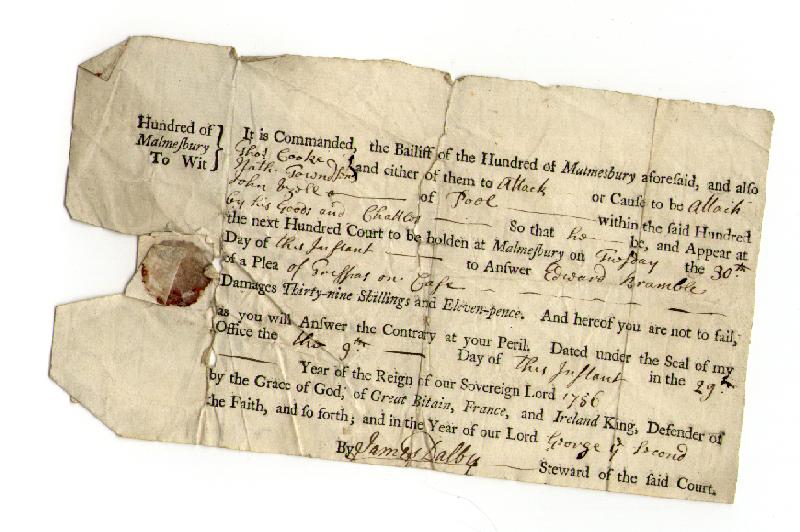 Hundred of
Malmesbury
To Wit
It is Commanded, the Bailiff of the Hundred of Malmesbury aforesaid, and also
Thos. Cooke
Nath. Townsend
and either of them to Attach or Cause to be Attach
John of Pool within the said Hundred
by his Goods and Chattles So that he be, and Appear at
the next Hundred Court to be holden at Malmesbury on Tuesday the 30th
Day of this Instant to Answer Edward Bramble
of a Plea of on Case
Damages Thirty-nine Shillings and Eleven-pence. And hereof you are not to fail,
as you will Answer the Contrary at your Peril. Dated under the Seal of my
Office the 9th Day of this Instant in the 29th
Year of the Reign of our Sovereign Lord 1756
by the Grace of God, of Great Bitain, France, and Ireland King, Defender of
the Faith, and so forth; and in the Year of our Lord George ye Second
By James Dalby Steward of the said Court.